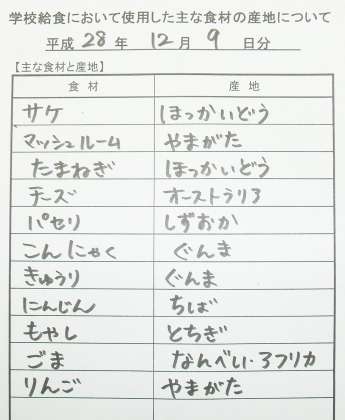 学校給食において使用した主な食材の産地について
平成 28 年 12 月 9 日分
【主な食材と産地】
食材 産地
サケ ほっかいどう
マッシュルーム やまがた
たまねぎ ほっかいどう
チーズ オーストラリア
パセリ しずおか
こんにゃく ぐんま
きゅうり ぐんま
にんじん ちば
もやし とちぎ
ごま なんべい・アフリカ
りんご やまがた